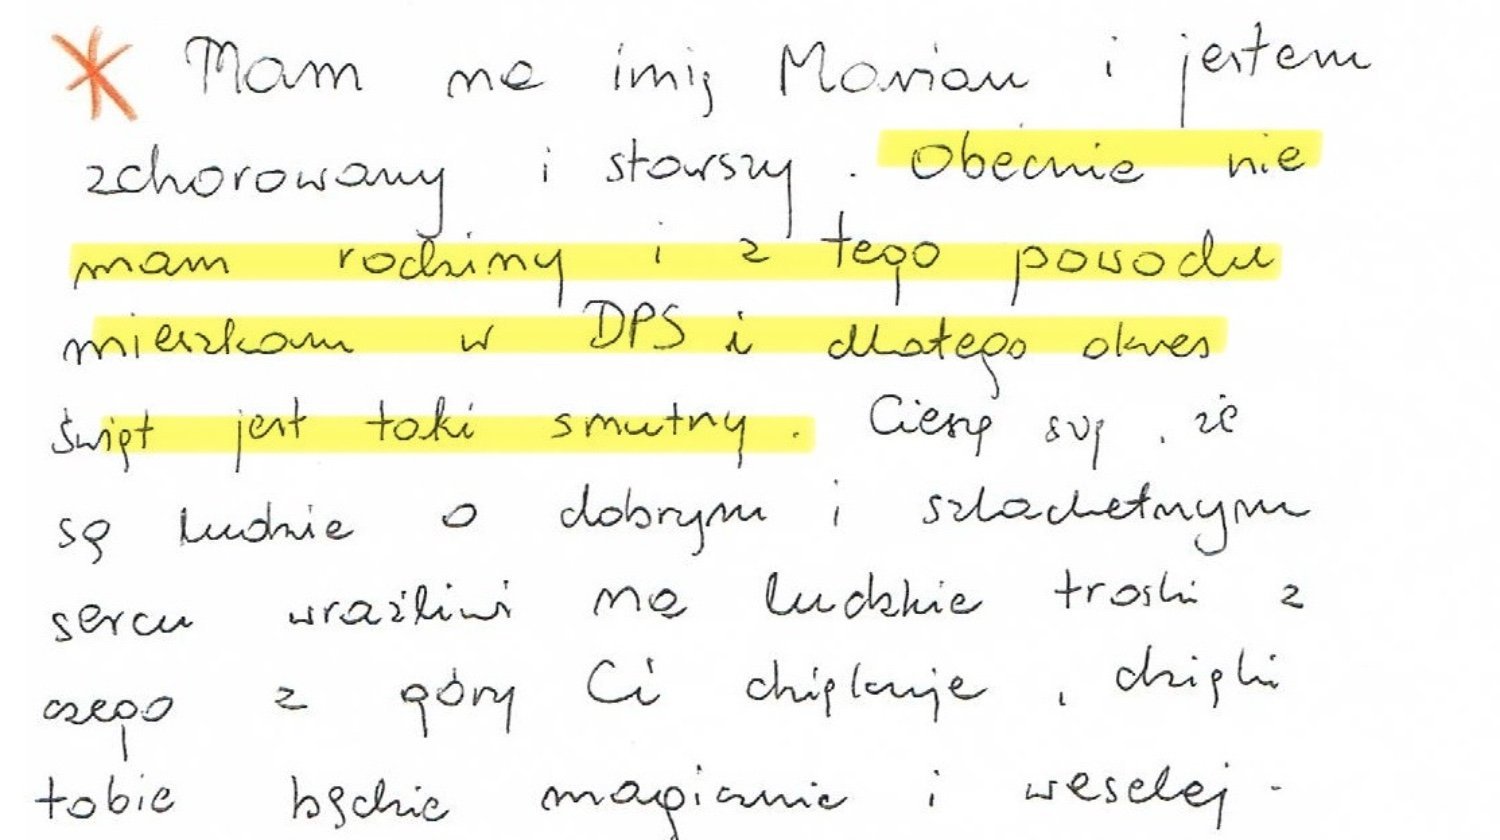 Mam na imię Marian i jestem
schorowany i starszy. Obecnie nie
mam rodziny i z tego powodu
mieszkam w DPS i dlatego okres
świąt jest taki smutny. Cieszę się, że
są ludzie o dobrym i szlachetnym
sercu wrażliwi na ludzkie troski z
czego z góry Ci dziękuje, dzięki
tobie będzie magicznie i weselej.